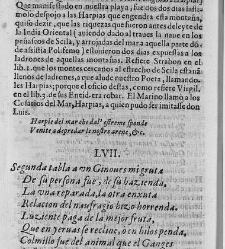 Que manifiesto en nuestra playa, fue dos dos
molo despojo a las Harpias que engendra esta montaña,
quiso dezir, que las riquezas que fueron antes del
la India Oriental (auiendo dado al traues en los
peñascos de Scila, y arrojadas del mar a aquella parte dõ-
de assistia Polifemo) estuuieron dos dias expuestas a los
ladrones de aquellas montañas. Refiere Strabon en el
lib. 1. que los montes cercanos al estrecho de Scila estan lle-
nos de ladrones, a que alude nuestro Poeta, llamando-
les Harpias; porque el oficio de estas, como refiere Virgil.
en el lib. 3. de sus Eneid. era robar. El Marino llamò a los
Cosarios del Mar, Harpias, a quien pudo ser imitasse don
Luis.
Harpie del mar che dal' estreme sponde
Venite a depredar le nostre arene, &c.
LVII.
Segunda tabla a vn Ginoues mi gruta
De su persona fue, de su hazienda,
La vna reparada, la otra enxuta
Relacion del naufragio hizo horrenda.
Luziente paga de la mejor fruta,
Que en yeruas se recline, o en hilos penda,
Colmillo fue del animal que el Ganges